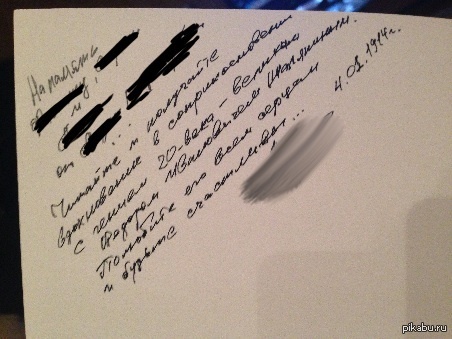 На память
му,
от ...
Читайте и получайте
вдохновение в соприкосновении
с гением 20-века - великим
Федором Ивановичем Шаляпиным.
Полюбите его всем сердцем
и будьте счастливы...
4.01.1914г.
pikabu.ru